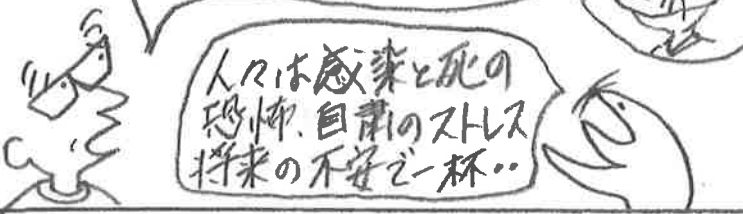 人々は感染と死の
恐怖、自粛のストレス
将来の不安で一杯・・